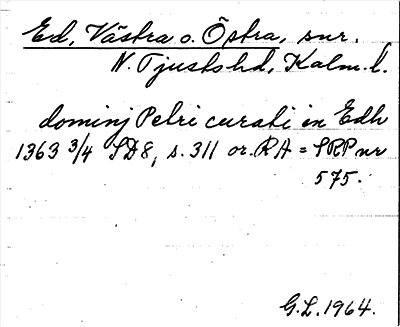 Ed, Västra o. Östra, snr.
N. Tjusts hd, Kalm. l.
dominj Petri curati in Edh
1363 3/4 SD8, s. 311 or. RA = SRP nr
575.
G.L. 1964.